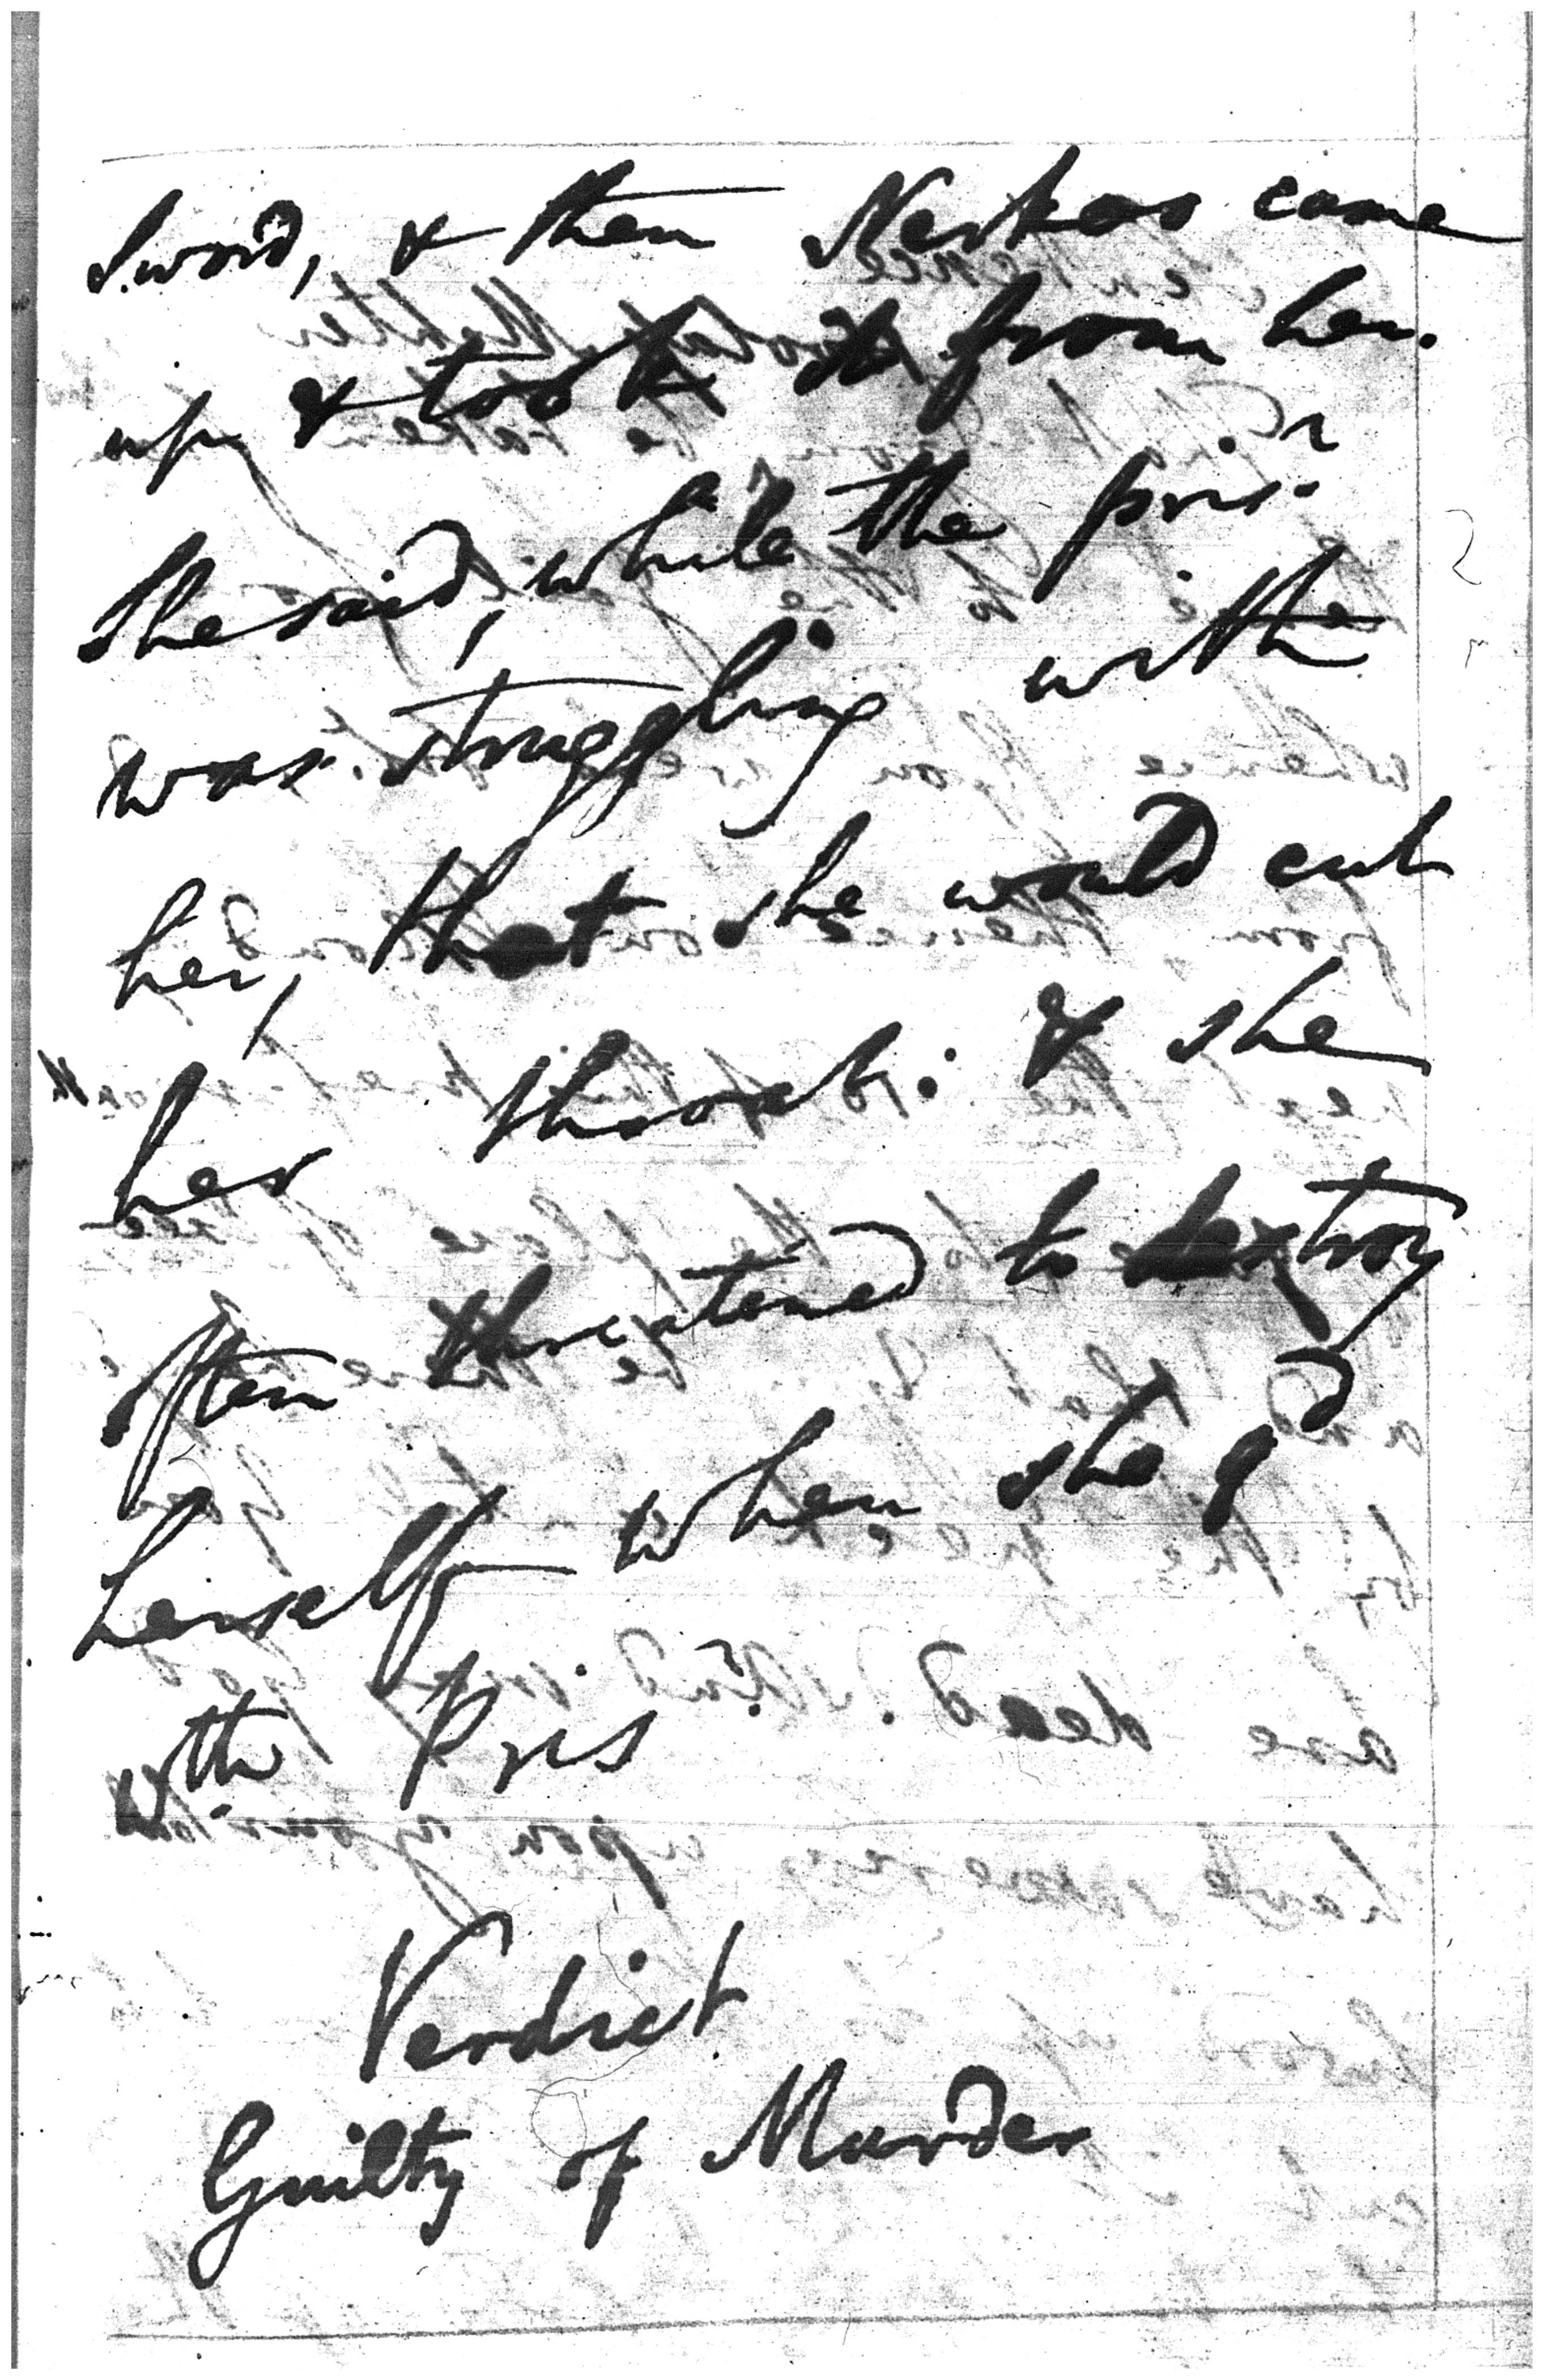 sword, & then Nerkos came
up & took it from her.
She said, while the pris.r
was struggling with
her, that she would cut
her throat: & she
often threatened to destroy
herself when she q.d
wth Pris
Verdict
Guilty of Murder